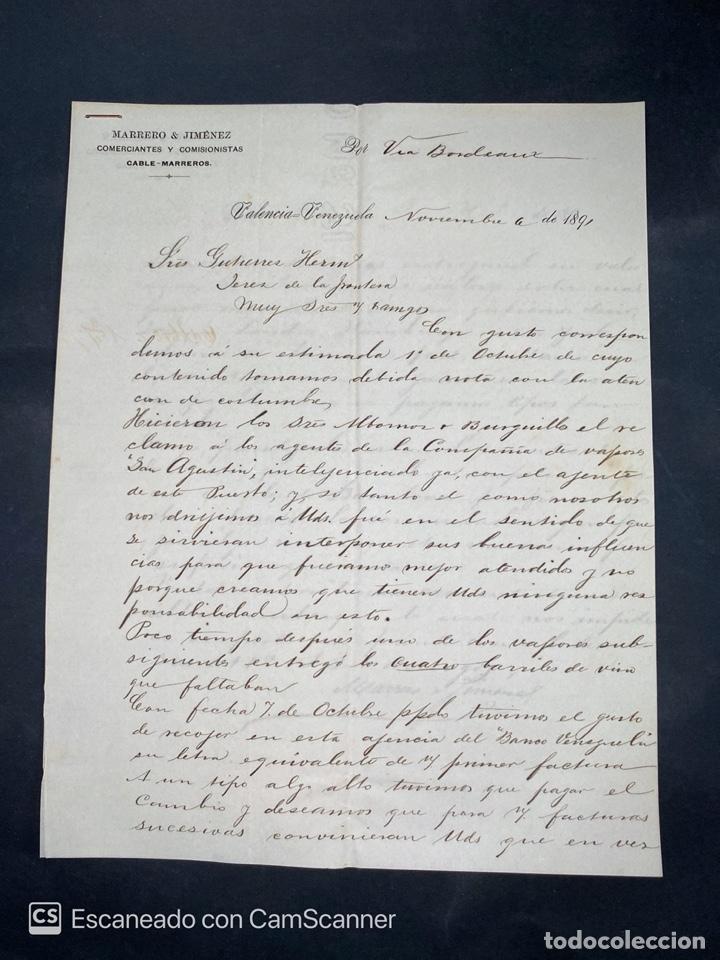 MARRERO & JIMÉNEZ
COMERCIANTES Y COMISIONISTAS
CABLE-MARREROS.
Por Via Bordeaux
Valencia-Venezuela Noviembre 6 de 1891
Sres Gutierres Hermˢ
Jerez de la frontera
Muy Sres y amgos
Con gusto correspon
demos á su estimada 1º de Octubre de cuyo
contenido tomamos debida nota con la aten
cion de costumbre,
Hicieron los Sres Mbornos & Burguillo el re
clamo á los agentes de la Compañia de vapores
"San Agustin", intelijenciado ya, con el ajente
de este Puerto; y, si tanto el como nosotros
nos dirijimos á Uds. fué en el sentido de que
se sirvieran interponer sus buenas influen
cias para que fueramos mejor atendidos y no
porque creamos que tienen Uds ninguna res
ponsabilidad en esto.
Poco tiempo después uno de los vapores sub-
siguientes entregó los cuatro barriles de vino
que faltaban
Con fecha 7 de Octubre ppdo tuvimos el gusto
de recojer en esta ajencia del "Banco Venezuela"
su letra equivalente de y primer factura
A un tipo algo alto tuvimos que pagar el
Cambio y deseamos que para y facturas
sucesivas convinieran Uds que en vez
CS Escaneado con CamScanner
todocoleccion